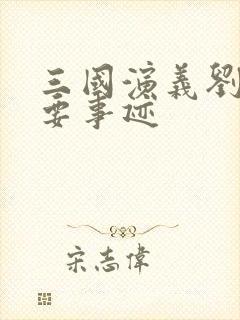 三國演義劉
要事迹
宋志偉